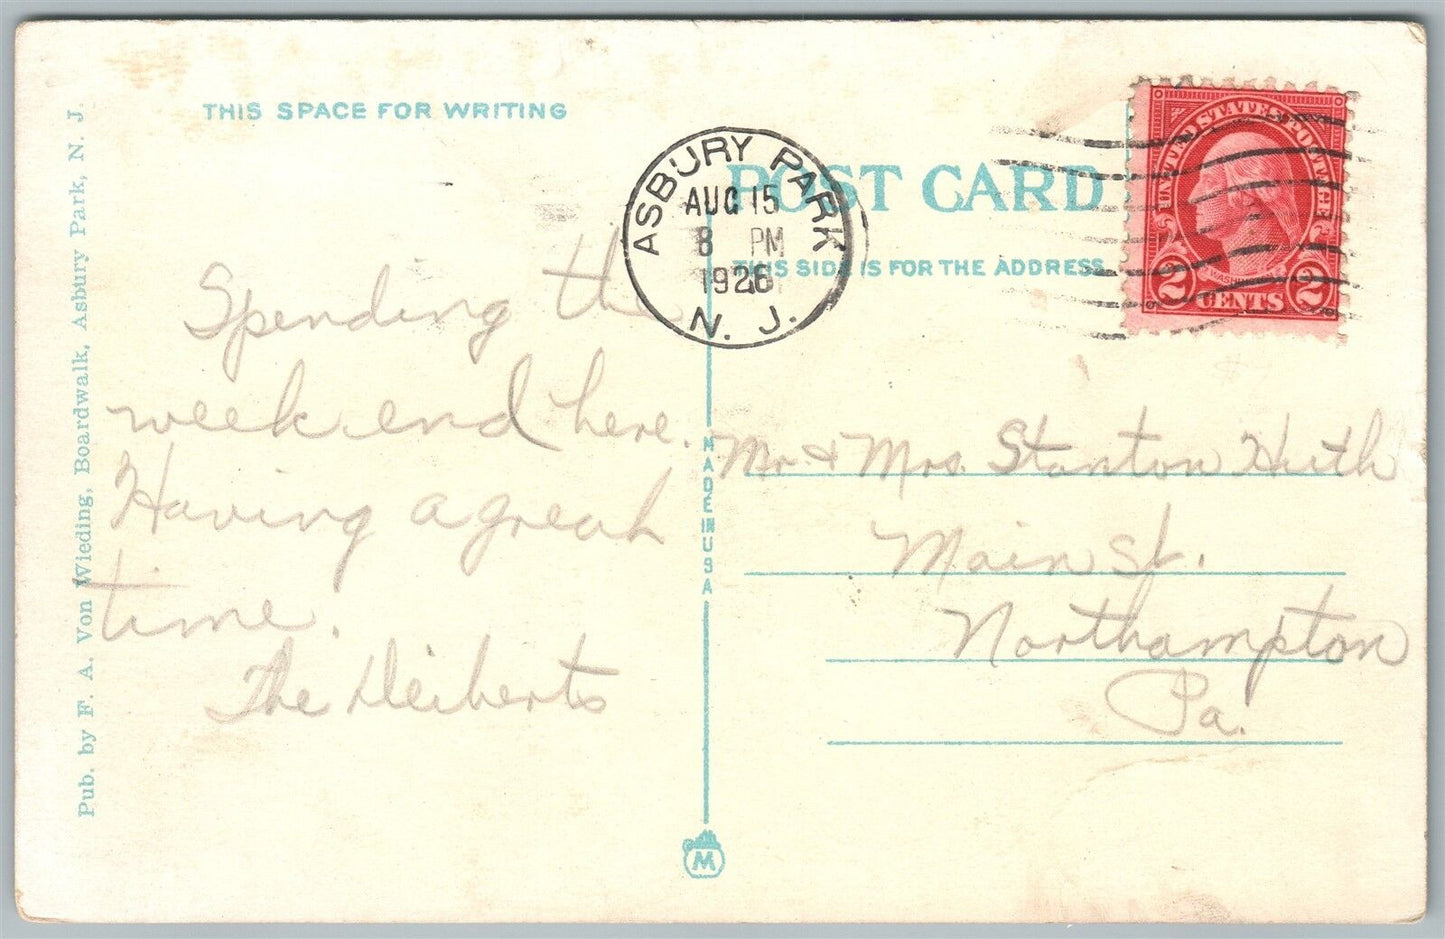 THIS SPACE FOR WRITING
POST CARD
THIS SIDE IS FOR THE ADDRESS
ASBURY PARK
AUG 15
8 PM
1926
N. J.
UNITED STATES POSTAGE
WASHINGTON
2 CENTS 2
Spending the
week end here.
Having a great
time.
The Deiberts
Mr. & Mrs. Stanton Huth
Main St.
Northampton
Pa.
MADE IN USA
M
Pub. by F. A. Von Wieding, Boardwalk, Asbury Park, N. J.